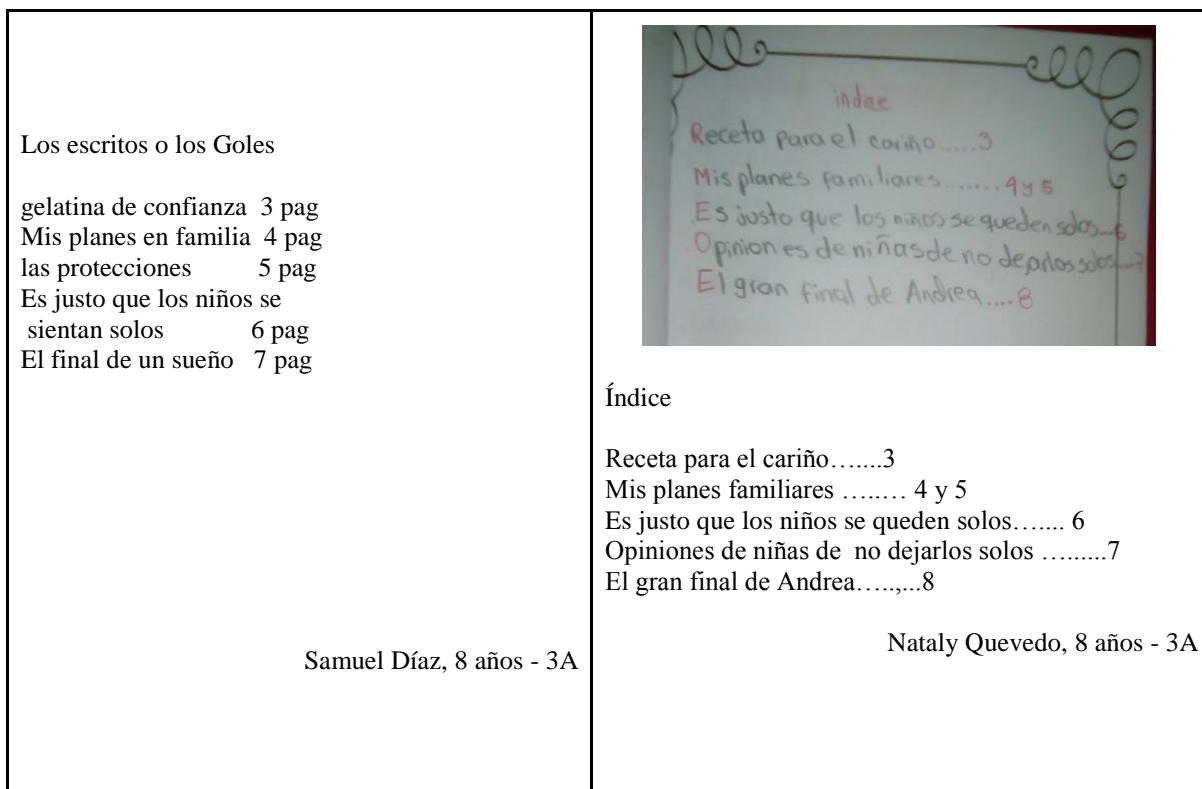 Los escritos o los Goles
gelatina de confianza 3 pag
Mis planes en familia 4 pag
las protecciones 5 pag
Es justo que los niños se
sientan solos 6 pag
El final de un sueño 7 pag
Samuel Díaz, 8 años - 3A
indice
Receta para el cariño.....3
Mis planes familiares.......4 y 5
Es justo que los niños se queden solos...6
Opiniones de niñas de no dejarlos solos...7
El gran final de Andrea....8
Índice
Receta para el cariño…....3
Mis planes familiares …..… 4 y 5
Es justo que los niños se queden solos….... 6
Opiniones de niñas de no dejarlos solos ….....7
El gran final de Andrea…..,...8
Nataly Quevedo, 8 años - 3A